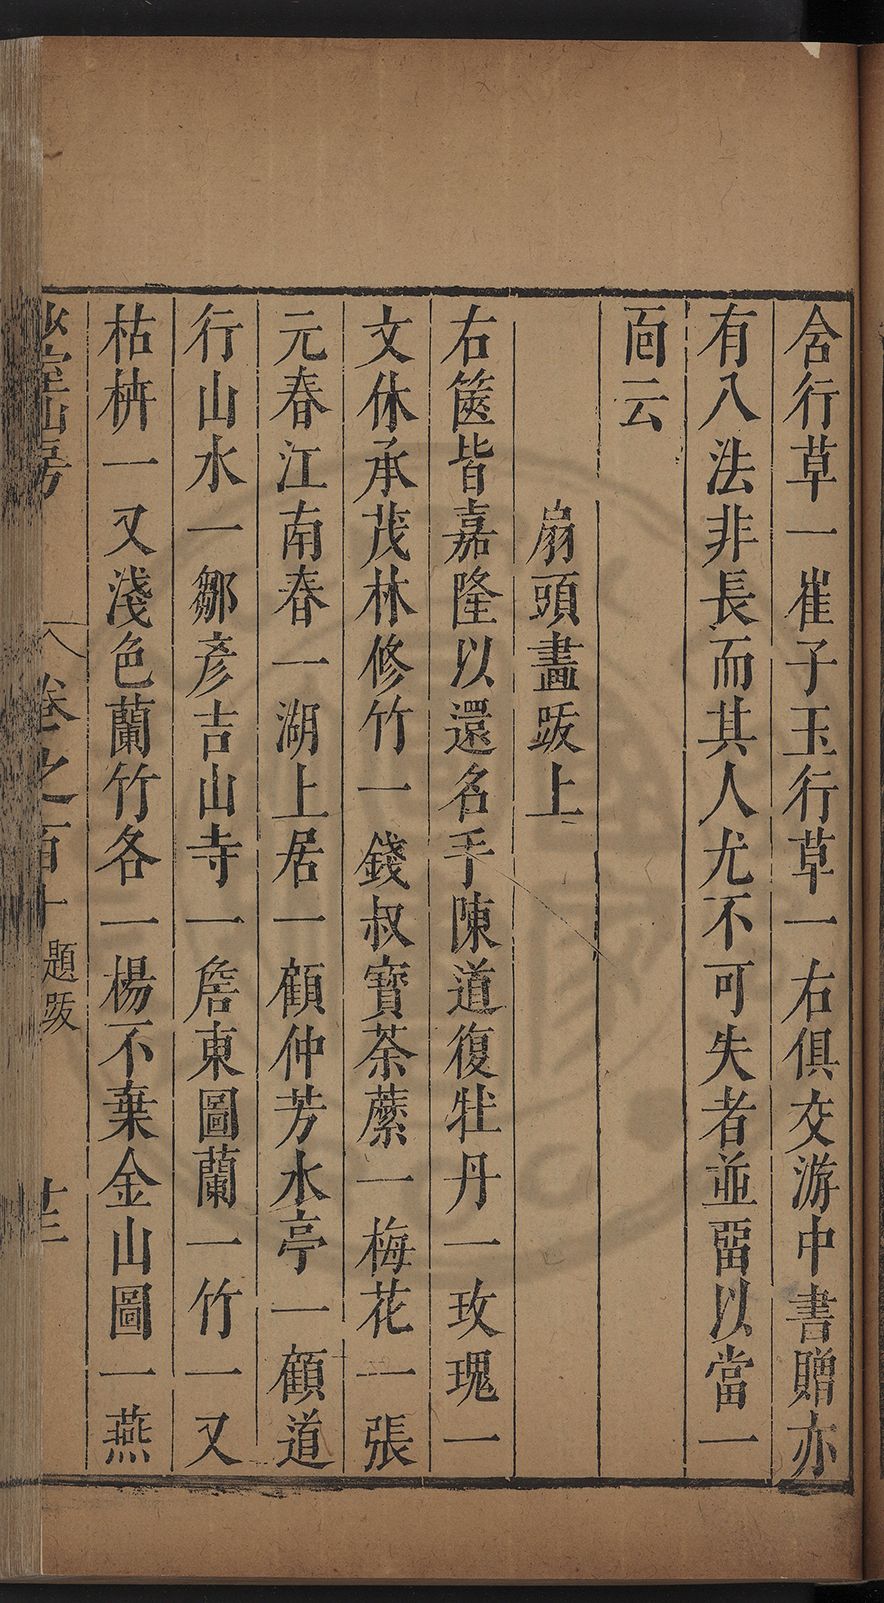 舍行草一崔子玉行草一右俱交游中書贈亦
有八法非長而其人尤不可失者並留以當一
面云
扇頭畫跋上
右篋皆嘉隆以還名手陳道復牡丹一玫瑰一
文休承茂林修竹一錢叔寶荼䕷一梅花一張
元春江南春一湖上居一顧仲芳水亭一顧道
行山水一鄒彥吉山寺一詹東圖蘭一竹一又
枯枿一又淺色蘭竹各一楊不棄金山圖一燕
卷之百十 題跋